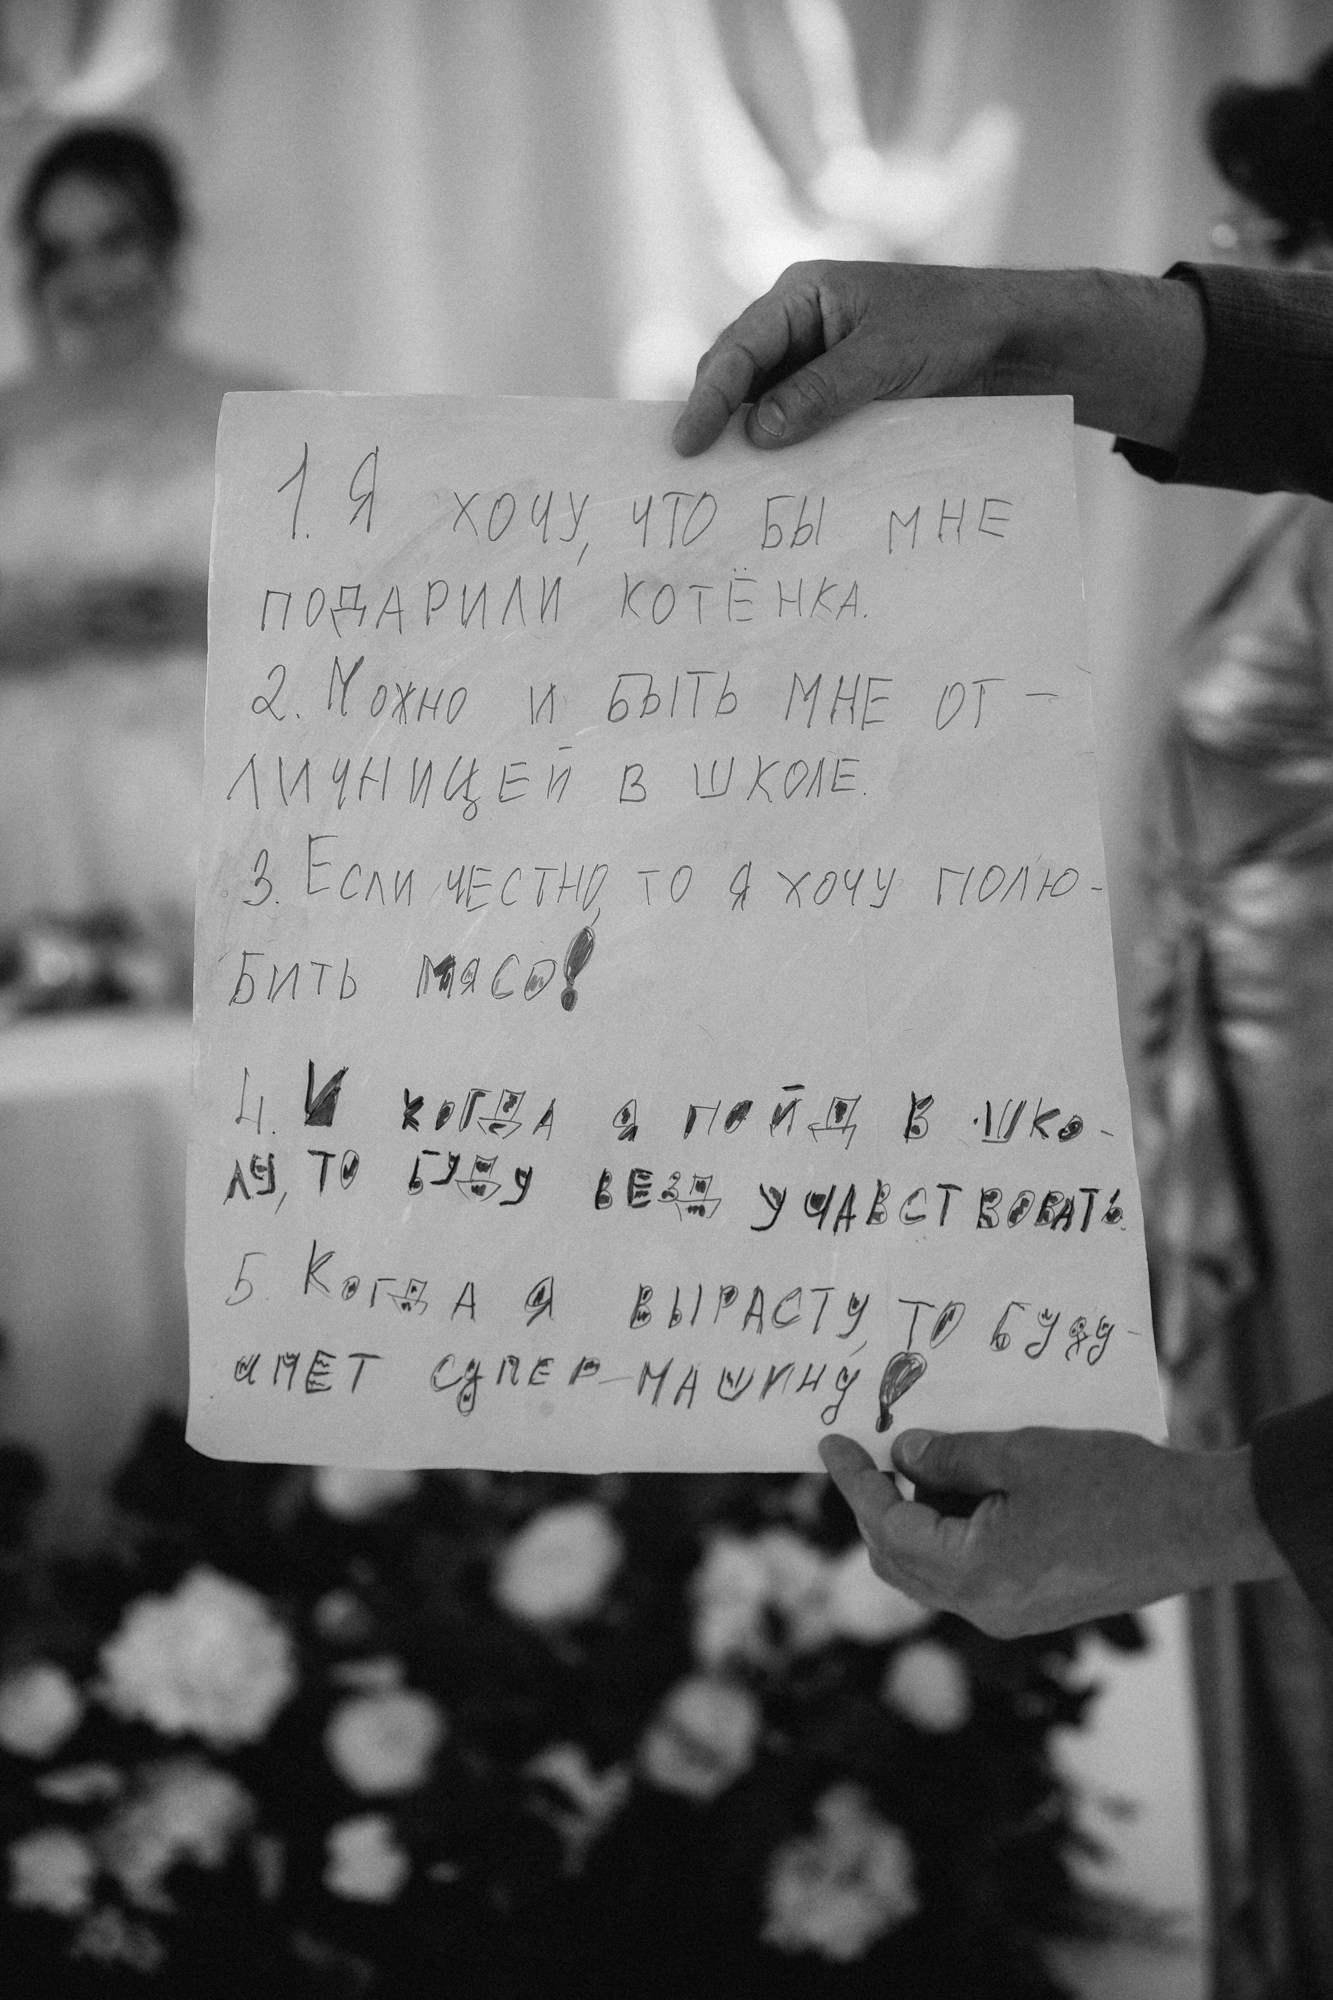 1. Я ХОЧУ, ЧТО БЫ МНЕ
ПОДАРИЛИ КОТЁНКА.
2. Можно И БЫТЬ МНЕ ОТ-
ЛИЧНИЦЕЙ В ШКОЛЕ.
3. Если ЧЕСТНО, ТО Я ХОЧУ ПОЛЮ-
БИТЬ МЯСО!
4. И КОГДА Я ПОЙД В ШКО-
ЛУ, ТО БУДУ ВЕЗД УЧАВСТВОВАТЬ.
5. КОГДА Я ВЫРАСТУ, ТО БУДУ-
ИМЕТ СУПЕР-МАШИНУ!